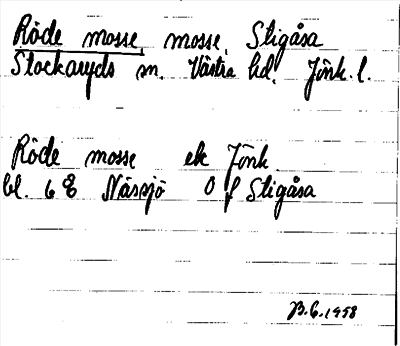 Röde mosse mosse, Stigåsa
Stockaryds sn. Västra hd. Jönk. l.
Röde mosse ek Jönk
bl. 6 E Nässjö O f Stigåsa
B.G. 1958